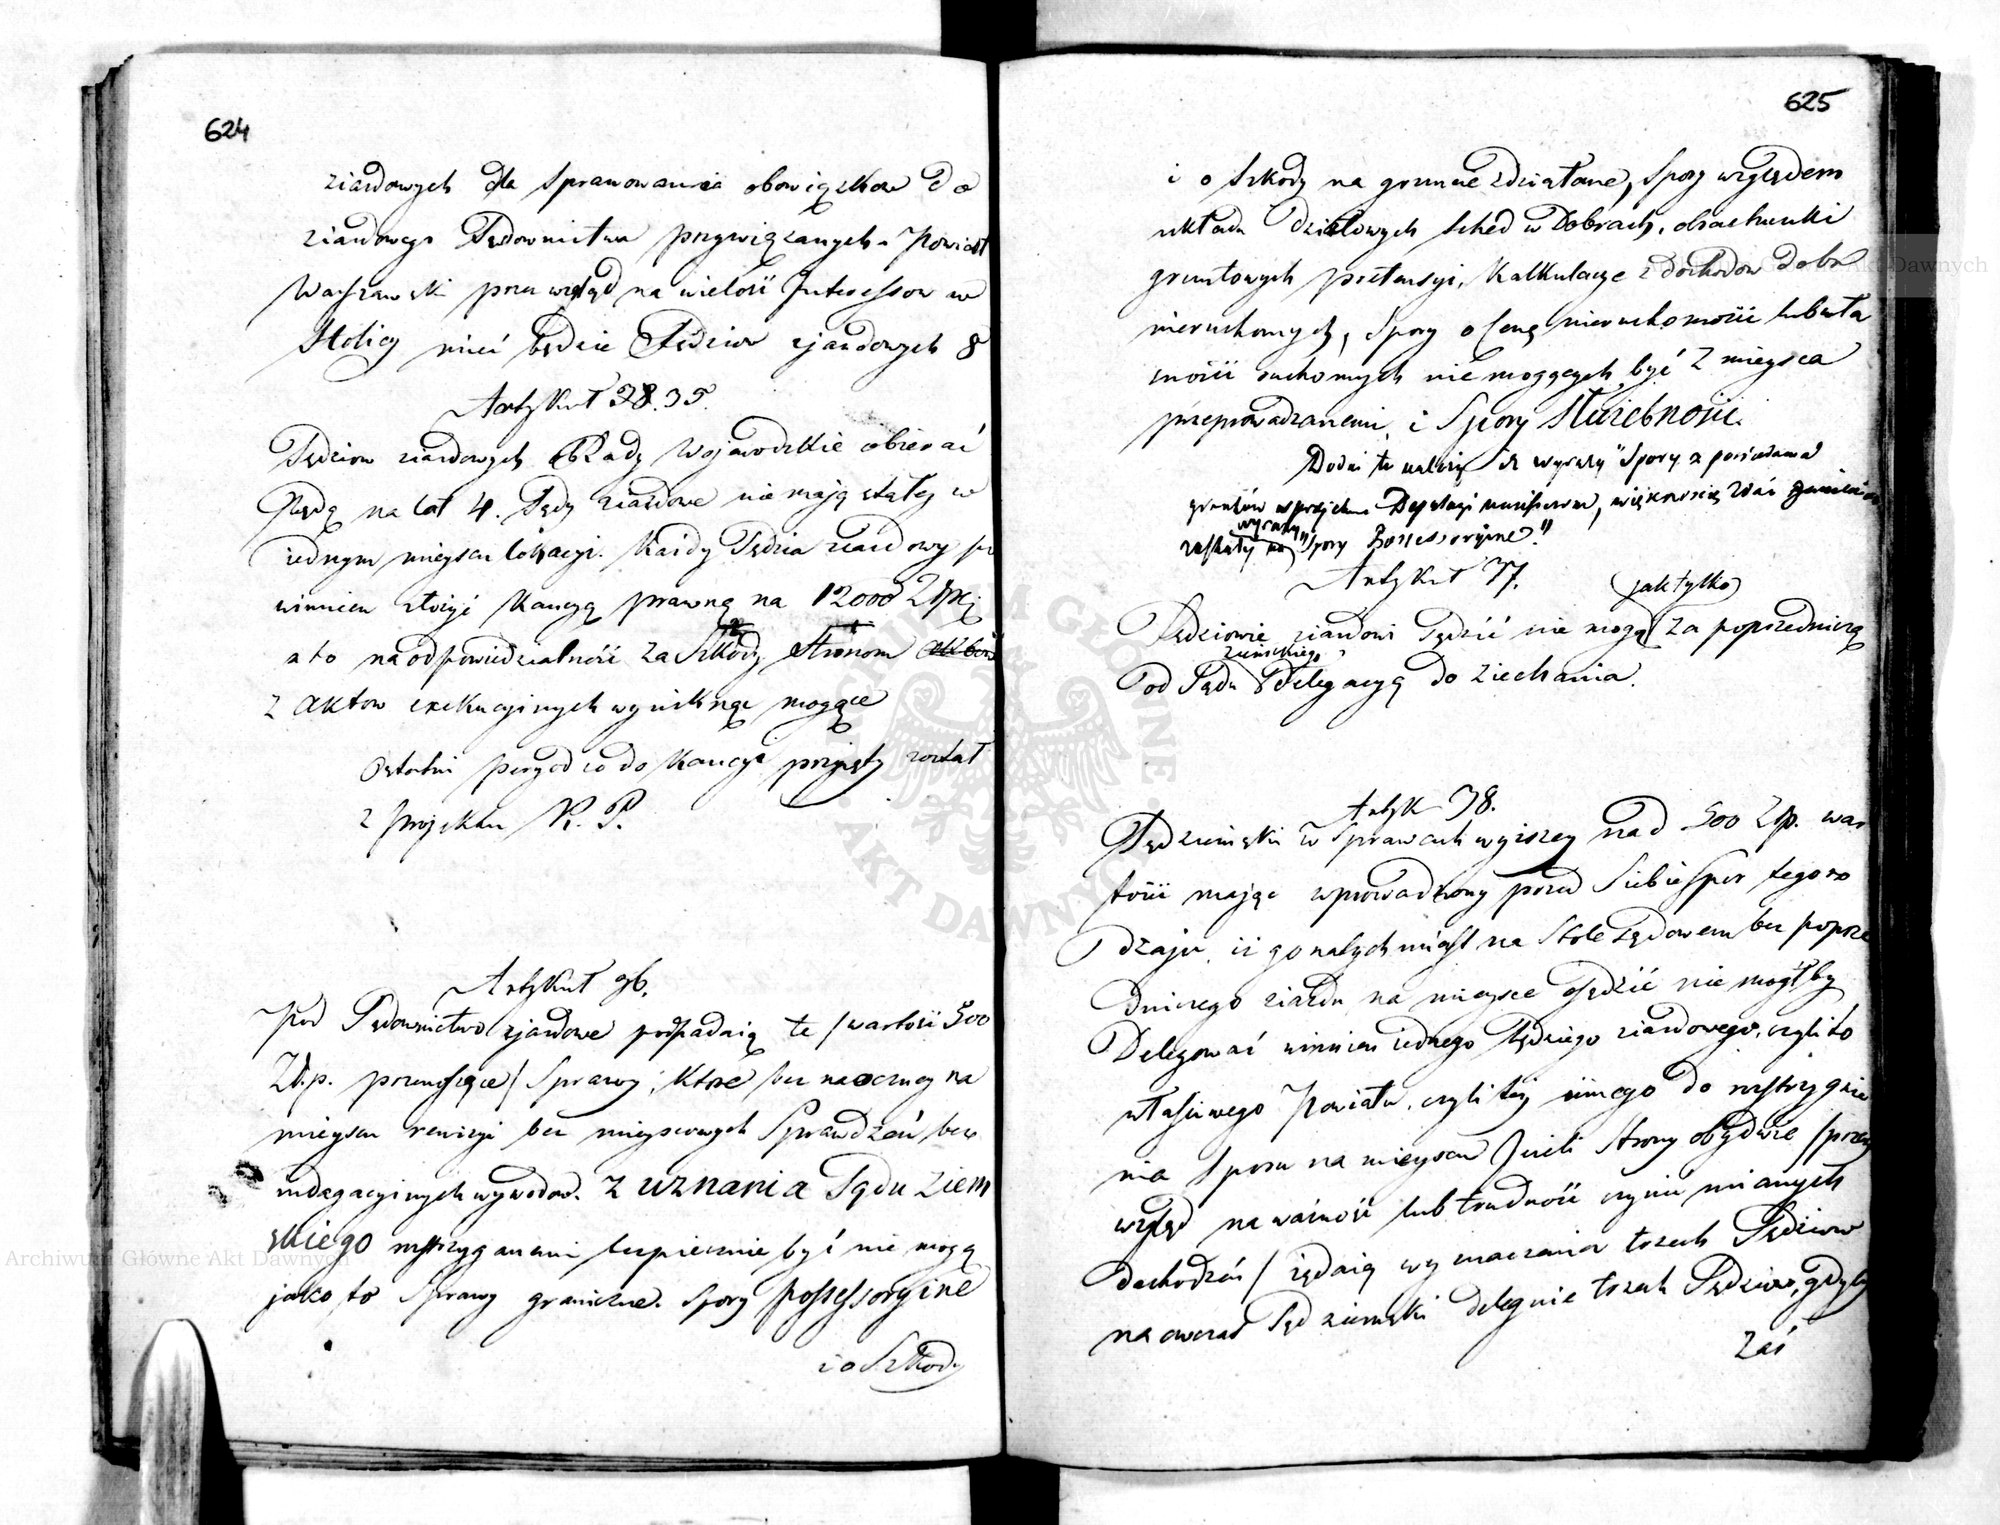 624
ziazdowych dla sprawowania obowiązkow do
ziazdowego Sądownictwa przywiązanych. Powiat
Warszawski przez wzgląd na wielość Interessow w
Stolicy mieć będzie Sędziow zjazdowych 8
Artykuł 35.
Sędziow ziazdowych Rady Wojewodzkie obierać
będą na lat 4. Sądy ziazdowe nie mają stałej w
iednym mieyscu lokacyi. Każdy Sędzia ziazdowy po
winien złożyć Kaucyą prawną na 12000 Złp.
a to na odpowiedzialność za Szkody Stronom
z aktow exekucyinych wyniknąć mogące
Ostatni peryod co do Kaucyi przyięty został
z projektu K. P.
Artykuł 36.
Pod Sądownictwo zjazdowe podpadaią te /wartości 500
Zł.p. przenoszące/ Sprawy, które bez naoczney na
mieyscu rewizyi bez mieyscowych Sprawdzeń bez
indagacyinych wywodow. z uznania Sądu Ziem
skiego rozstrzyganemi bezpiecznie być nie mogą
jako to Sprawy graniczne. Spory possessoryine
i o Szkody
625
i o Szkody na gruncie zdziałane, Spory względem
układu działowych Sched w Dobrach, obrachunki
gruntowych pretensyi, Kalkulacye z dochodow Dobr
nieruchomych, Spory o Cenę nieruchomości lub wła
sności ruchomych nie mogących być z mieysca
przeprowadzanemi, i Spory Służebności.
Dodać tu należy iż wyrazy "Spory z posiadania
gruntów w projekcie Deputacyi umieszczone, większością zdań zamienione
wyrazy
zostały na "Spory Possessoryine."
Artykuł 37.
jak tylko
Sędziowie ziazdowi Sądzić nie mogą za poprzedniczą
ziemskiego
od Sądu Delegacyą do ziechania.
Artyk 38.
Sąd ziemski w Sprawach wyższey nad 500 Złp. war
tości mając wprowadzony przed Siebie Spor tego ro
dzaju, iż go natychmiast na Stole Sądowem bez poprze
dniczego ziazdu na mieysce osądzić nie mógłby
Delegować winien iednego Sędziego ziazdowego, czyli to
właściwego Powiatu, czyli też innego do rozstrzygnie
nia Sporu na mieyscu Jeżeli Strony obydwie /przez
wzgląd na ważność lub trudność czynić mianych
dochodzeń/ żądaią wyznaczenia trzech Sędziow
na owczas Sąd ziemski deleguie trzech Sędziow, gdyby
zaś
Archiwum Główne Akt Dawnych